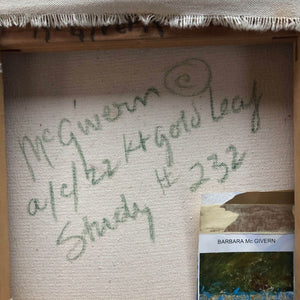 McGivern ©
a/c/22 kt gold leaf
Study # 232
BARBARA Mc GIVERN